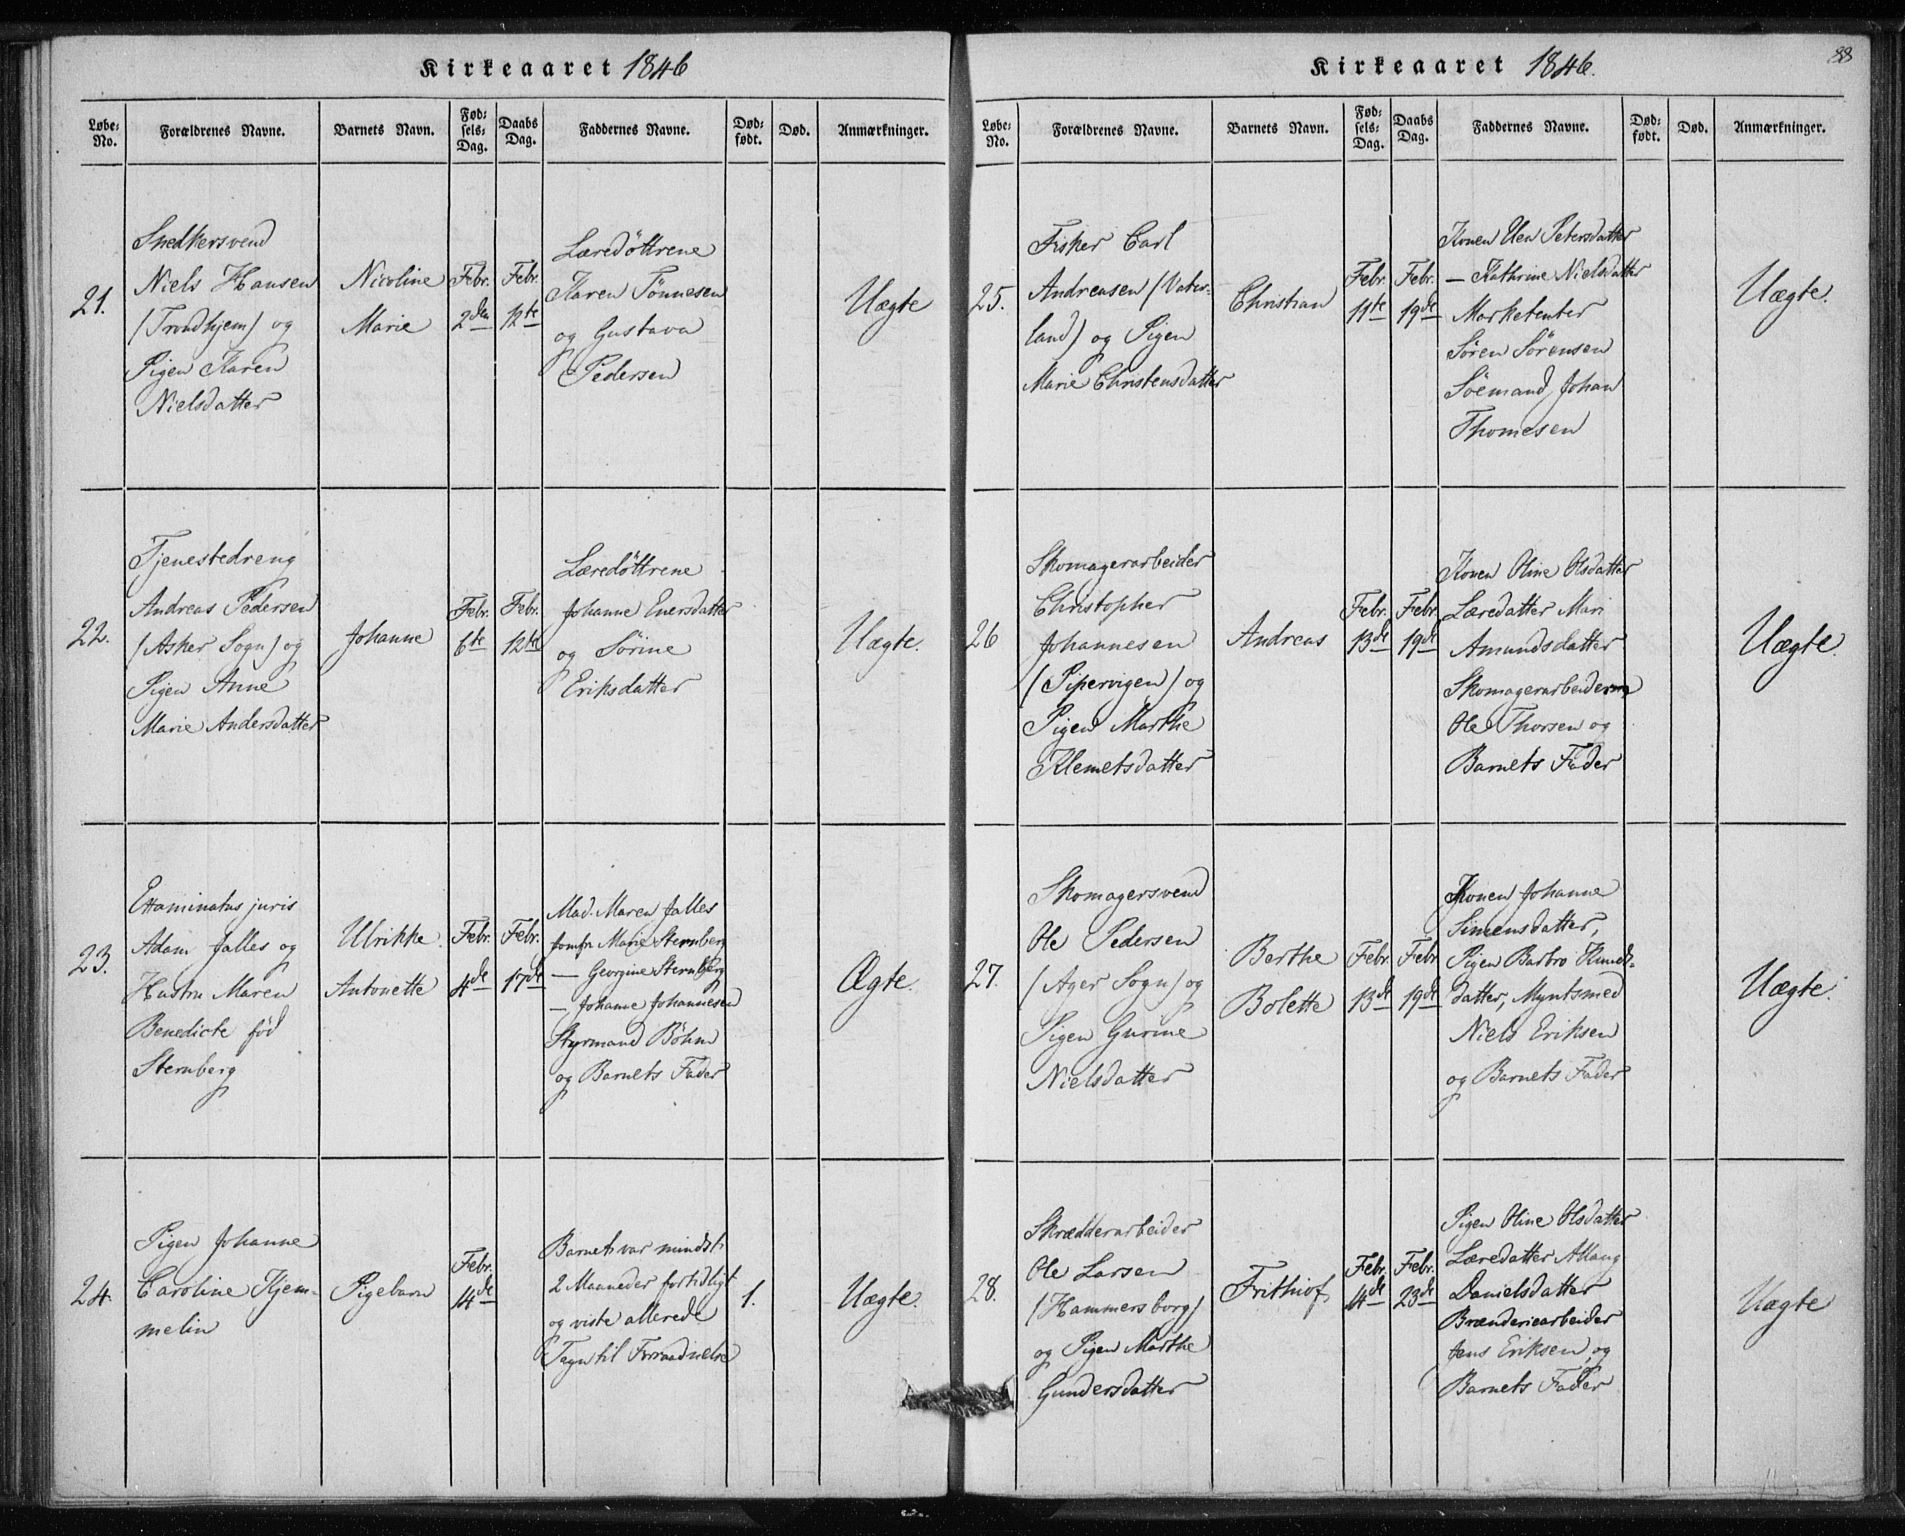 Kirkeaaret 1846
Løbe-No.
Forældrenes Navne.
Barnets Navn.
Fødsels-Dag.
Daabs Dag.
Faddernes Navne.
Død-født.
Død.
Anmærkninger.
21.
Snedkersvend
Niels Hansen
(Trondhjem) og
Pigen Karen
Nielsdatter
Nicoline
Marie
Febr.
2den
Febr.
12te
Læredöttrene
Karen Tönnesen
og Gustava
Pedersen
Uægte
22.
Tjenestedreng
Andreas Pedersen
(Asker Sogn) og
Pigen Anne
Marie Andersdatter
Johanne
Febr.
6te
Febr.
12te
Læredöttrene
Johanne Enersdatter
og Sörine
Eriksdatter
Uægte.
23.
Examinatus juris
Adam Jalles og
Hustru Maren
Benedicte föd
Sternberg
Ulrikke
Antonette
Febr.
4de
Febr.
17de
Mad. Maren Jalles
Jomfr Marie Sternberg
— Georgine Sternberg
— Johanne Johannesen
Styrmand Böhm
og Barnets Fader
Ægte.
24.
Pigen Johanne
Caroline Hjem-
melin
Pigebarn
Febr.
14de
Barnet var mindst
2 Maaneder fortidligt
og viste allerede
Tegn til Forraadnelse
1.
Uægte.
Kirkeaaret 1846.
88
Løbe-No.
Forældrenes Navne.
Barnets Navn.
Fødsels-Dag.
Daabs Dag.
Faddernes Navne.
Død-født.
Død.
Anmærkninger.
25.
Fisker Carl
Andreasen (Vater-
land) og Pigen
Marie Christensdatter
Christian
Febr.
11te
Febr.
19de
Konen Petersdatter
— Kathrine Nielsdatter
Marketenter
Sören Sörensen
Söemand Johan
Thomesen
Uægte.
26
Skomagerarbeider
Christopher
Johannesen
(Pipervigen) og
Pigen Marthe
Klemetsdatter
Andreas
Febr.
13de
Febr.
19de
Konen Oline Olsdatter
Læredatter Mari
Amundsdatter
Skomagerarbeiderne
Ole Thorsen og
Barnets Fader
Uægte.
27.
Skomagersvend
Ole Pedersen
(Ager Sogn) og
Pigen Gurine
Nielsdatter
Berthe
Bolette
Febr.
13de
Febr.
19de
Konen Johanne
Simensdatter,
Pigen Barbro Knuds-
datter, Myntsmed
Niels Eriksen
og Barnets Fader
Uægte.
28.
Skrædderarbeider
Ole Larsen
(Hammersborg)
og Pigen Marthe
Gundersdatter
Frithiof
Febr.
14de
Febr.
23de
Pigen Oline Olsdatter
Læredatter
Danielsdatter
Brænderiearbeider
Jens Eriksen, og
Barnets Fader
Uægte